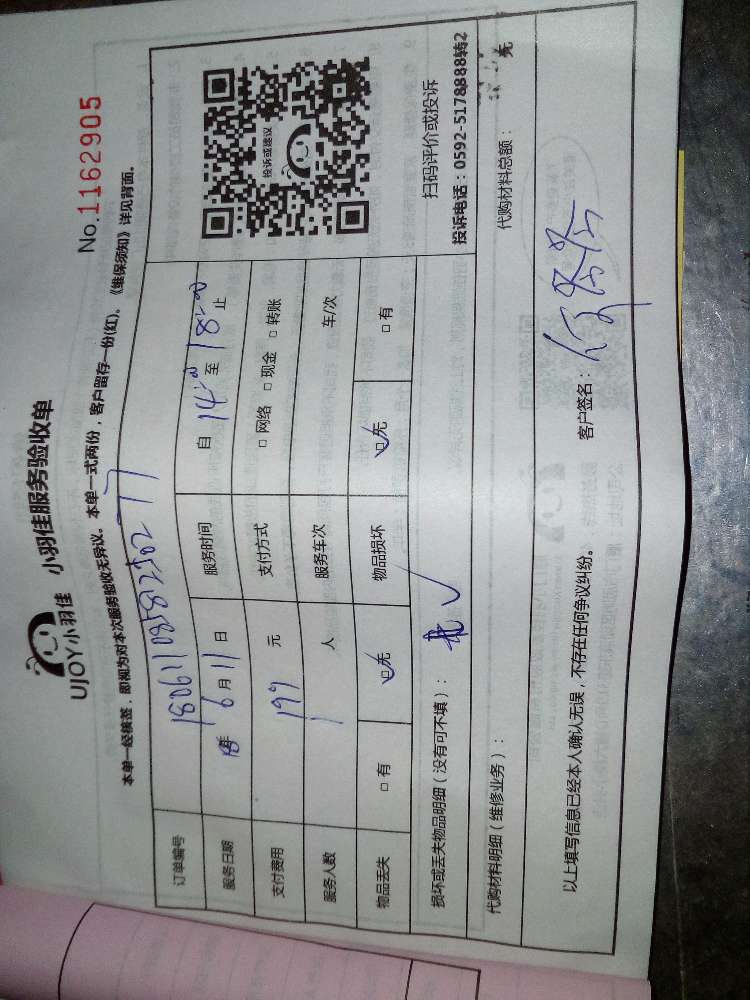 UJOY小羽佳 小羽佳服务验收单
No.1162905
本单一经核签，即视为对本次服务验收无异议。本单一式两份，客户留存一份(红)。《维保须知》详见背面。
订单编号
服务日期 18年 6月 11日 服务时间 自 14:00 至 18:00 止
支付费用 199 元 支付方式 □ 网络 □ 现金 □ 转账
服务人数 1 人 服务车次 车/次
物品丢失 □ 有 □ 无 物品损坏 □ 无 □ 有
投诉或建议
扫码评价或投诉
投诉电话：0592-5178888转2
损坏或丢失物品明细（没有可不填）：
代购材料明细（维修业务）： 代购材料总额： 元
以上填写信息已经本人确认无误，不存在任何争议纠纷。 客户签名：